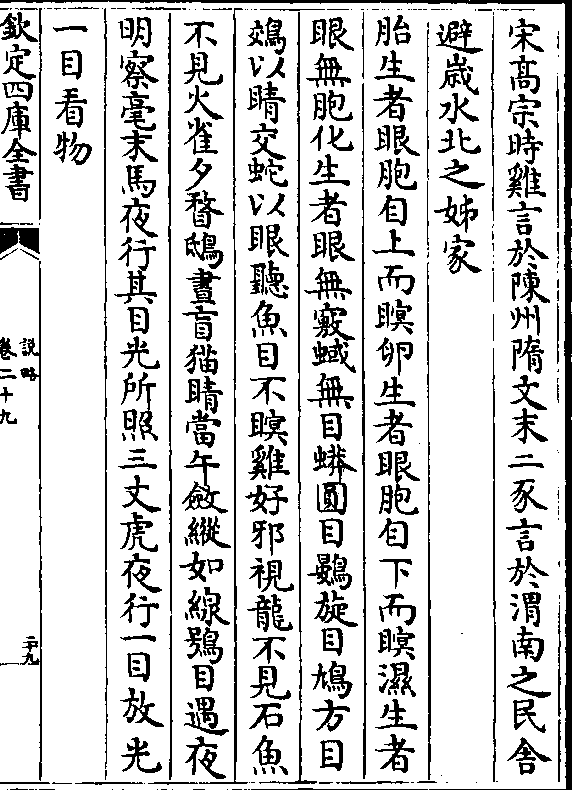 宋髙宗時雞言於陳州隋文末二豕言於渭南之民舍
避歳水北之姊家
胎生者眼胞自上而瞑卵生者眼胞自下而瞑濕生者
眼無胞化生者眼無竅蜮無目蟒圓目鷃旋目鳩方目
鵁以睛交蛇以眼聽魚目不瞑雞好邪視龍不見石魚
不見火雀夕瞀鴟晝盲猫睛當午斂縱如線鴞目遇夜
明察毫末馬夜行其目光所照三丈虎夜行一目放光
一目看物
欽定四庫全書
説略
卷二十九
二十九